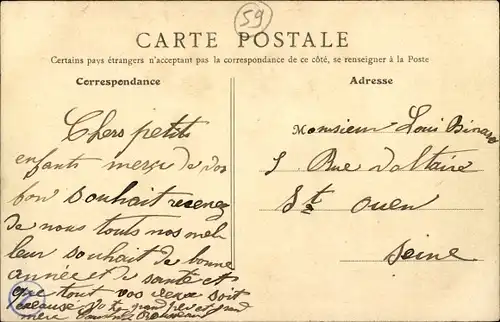 59
CARTE POSTALE
Certains pays étrangers n'acceptant pas la correspondance de ce côté, se renseigner à la Poste
Correspondance
Chers petits
enfants merçi de vos
bon souhait recenez
de nous touts nos meil
leur souhait de bonne
année et de santé et
que tout vos veux soit
éxeause Votre grand père et grand
mère
Adresse
Monsieur Loui Binard
5 Rue Voltaire
St Ouen
Seine